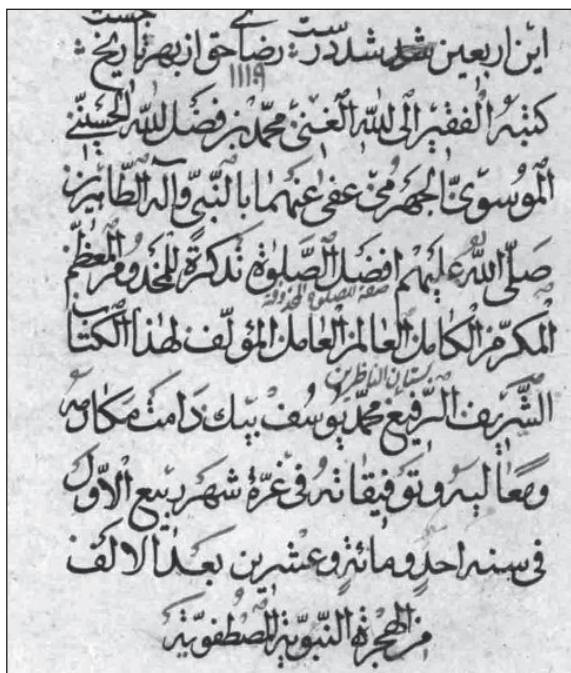 جست
این اربعین شد درست رضای حق از بهر تاریخ
۱۱۱۹
کتبه الفقیر الی الله الغنی محمد بن فضل الله الحسینی
الموسوی الجهرمی عفی عنهما بالنبی وآله الطاهرین
صلی الله علیهم افضل الصلوة تذکرة للمخدوم المعظم
صفة للصلوة المحذوفة
المکرم الکامل العالم العامل المؤلف لهذا الکتاب
بستان الناظرین
الشریف الرفیع محمد یوسف بیك دامت مکارمه
ومعالیه وتوفیقاته فی غرة شهر ربیع الاول
فی سنه احد ومائة وعشرین بعد الالف
من الهجرة النبویة المصطفویة